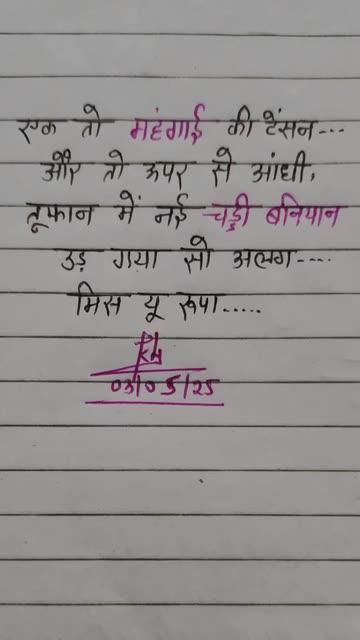 एक तो महंगाई की टेंसन---
और तो ऊपर से आंधी,
तूफान में नई चड्डी बनियान
उड़ गया सो अलग----
मिस यू रूपा.....
03/05/25